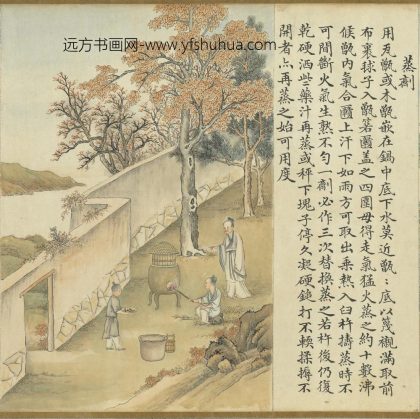 远方书画网·www.yfshuhua.com
蒸劑
用瓦甑或木甑嵌在鍋中底下水莫近甑〻底以篾襯滿取前
布裹球子入甑箬蓋之四圍毋得走氣猛火蒸之約十數沸
候甑內氣合上汗下如雨方可取出乘熱入臼杵擣蒸時不
可間斷火氣生熟不勻一劑必作三次替換蒸之若杵後仍復
乾硬洒些藥汁再蒸或秤下塊子停久凝硬鎚打不輭揉擣不
開者亦再蒸之始可用度